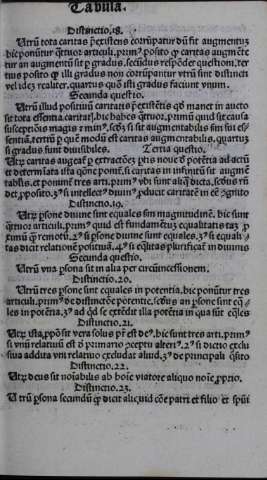 Tabula.
Distinctio .18.
Utrū tota caritas p̄existens corrūpatur dū fit augmentū:
hic ponūtur q̄tuor articuli. primꝰ posito ꝙ caritas augmēte
tur an augmentū sit p gradus. secūdus respōdet questioni. ter
tius posito ꝙ illi gradus non corrūpantur vtrū sint distincti
vel idēz realiter. quartus quō isti gradus faciunt vnum.
Secunda questio.
Utrū illud positiuū caritatis p̄existētis qd̓ manet in aucto
sit tota essentia caritatꝭ. hic habes q̄tuor. primū quid sit causa
susceptiōis magis ⁊ minꝰ. scdʒ si sit augmentabilis sm̄ sui essē
sentiā. tertiū p quē modū est caritas augmentabilis. quartus
si gradus sunt diuisibiles. Tertia questio.
Utꝝ caritas augeāt p extractōeʒ ptis noue d̓ potētia ad actū
Distinctio .19.
Utꝝ psone diuine sint equales sm̄ magnitudinē. hic sunt
q̄tuor articuli. primꝰ quid est fundamētū equalitatis taꝫ ꝓ
ximū ꝙ remotū. 2ꝰ si psone diuine sunt equales. 3ꝰ si equali
tas dicit relationē positiuā. 4ꝰ si eq̄litas plurificat in diuinis
Secunda questio.
Utrū vna psona sit in alia per circūincessionem.
Distinctio .20.
Utrū tres psone sunt equales in potentia. hic ponūtur tres
articuli. primꝰ de distinctōe potentie. scdus an psone sunt eq̄
les in potētia. 3ꝰ ad qd̓ se extēdit illa potētia in qua sūt eq̄les
Distinctio .21.
Utꝝ ista ꝓpō sit vera solus pr̄ est deꝰ. hic sunt tres arti. primꝰ
si vnū relatiuū est d̓ primario ꝯceptu alteriꝰ. 2ꝰ si dictio exclu
siua addita vni relatiuo excludat aliud. 3ꝰ de principali q̄sito
Distinctio .22.
Utꝝ deus sit noīabilis ab hoīe viatore aliquo noīe ꝓprio.
Distinctio .23.
Utrū psona secundū ꝙ dicit aliquid cōe patri et filio et spūi